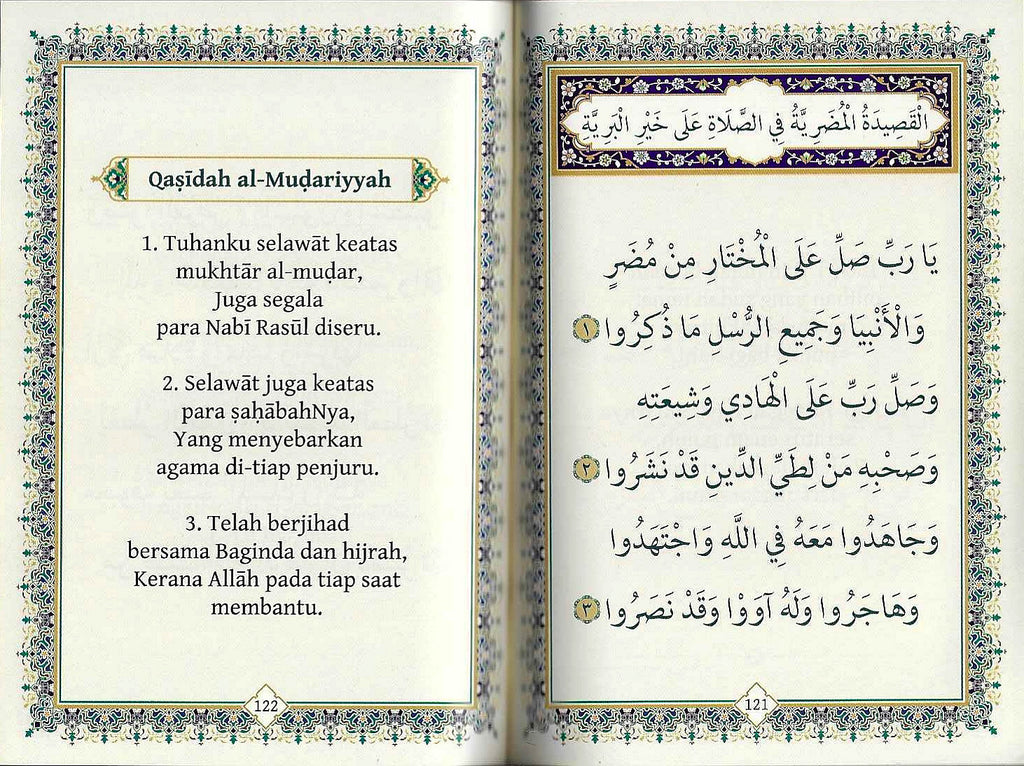 الْقَصِيدَةُ الْمُضَرِيَّةُ فِي الصَّلَاةِ عَلَى خَيْرِ الْبَرِيَّةِ
يَا رَبِّ صَلِّ عَلَى الْمُخْتَارِ مِنْ مُضَرٍ
وَالْأَنْبِيَا وَجَمِيعِ الرُّسْلِ مَا ذُكِرُوا ١
وَصَلِّ رَبِّ عَلَى الْهَادِي وَشِيعَتِهِ
وَصَحْبِهِ مَنْ لِطَيِّ الدِّينِ قَدْ نَشَرُوا ٢
وَجَاهَدُوا مَعَهُ فِي اللَّهِ وَاجْتَهَدُوا
وَهَاجَرُوا وَلَهُ آوَوْا وَقَدْ نَصَرُوا ٣
121
Qaṣīdah al-Muḍariyyah
1. Tuhanku selawāt keatas
mukhtār al-muḍar,
Juga segala
para Nabī Rasūl diseru.
2. Selawāt juga keatas
para ṣaḥābahNya,
Yang menyebarkan
agama di-tiap penjuru.
3. Telah berjihad
bersama Baginda dan hijrah,
Kerana Allāh pada tiap saat
membantu.
122